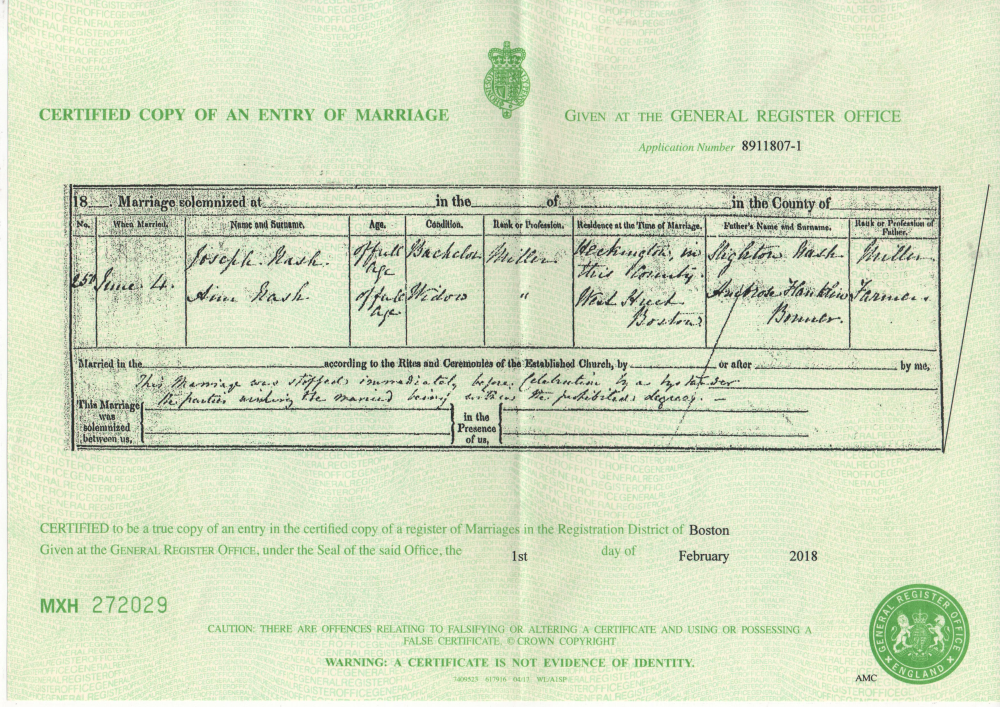 CERTIFIED COPY OF AN ENTRY OF MARRIAGE
GIVEN AT THE GENERAL REGISTER OFFICE
Application Number 8911807-1
18 . Marriage solemnized at in the of in the County of
No. When Married. Name and Surname. Age. Condition. Rank or Profession. Residence at the Time of Marriage. Father's Name and Surname. Rank or Profession of Father.
250 June 4. Joseph Nash. Of full age Bachelor Miller Heckington, in this County. Slighton Nash Miller
Ann Nash. Of full age Widow " West Street Boston. Ambrose Franklin Bonner. Farmer
Married in the according to the Rites and Ceremonies of the Established Church, by or after by me,
This Marriage was stopped immediately before Celebration by a bystander
the parties the married being within the prohibited degrees. —
This Marriage was solemnized between us,
in the Presence of us,
CERTIFIED to be a true copy of an entry in the certified copy of a register of Marriages in the Registration District of Boston
Given at the GENERAL REGISTER OFFICE, under the Seal of the said Office, the 1st day of February 2018
MXH 272029
CAUTION: THERE ARE OFFENCES RELATING TO FALSIFYING OR ALTERING A CERTIFICATE AND USING OR POSSESSING A
FALSE CERTIFICATE. © CROWN COPYRIGHT
WARNING: A CERTIFICATE IS NOT EVIDENCE OF IDENTITY.
GENERAL REGISTER OFFICE
ENGLAND
AMC